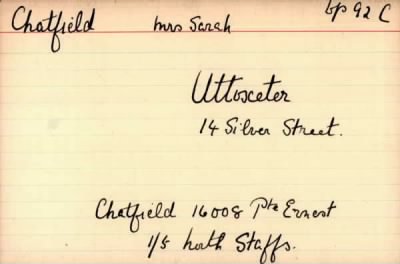 Chatfield Mrs Sarah bp 92 C
Uttoxeter
14 Silver Street.
Chatfield 16008 Pte Ernest
1/5 North Staffs.